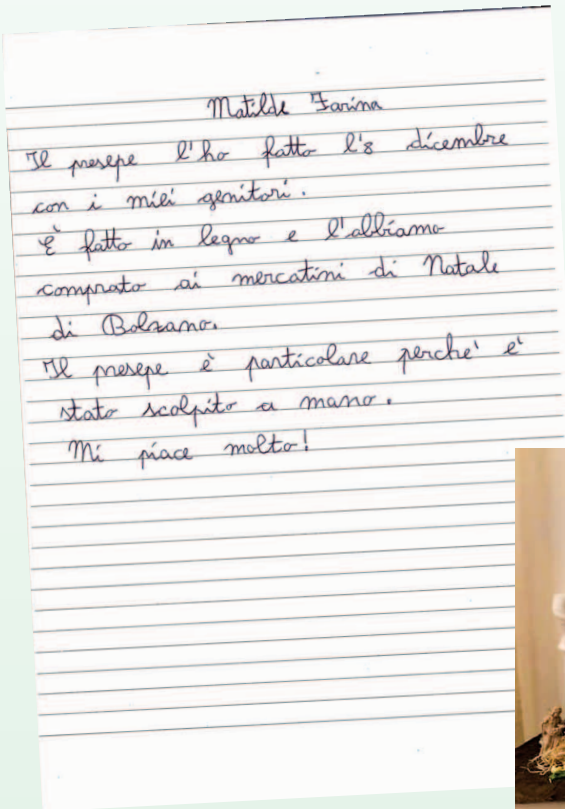 Matilde Farina
Il presepe l'ho fatto l'8 dicembre
con i miei genitori.
È fatto in legno e l'abbiamo
comprato ai mercatini di Natale
di Bolzano.
Il presepe è particolare perche' e'
stato scolpito a mano.
Mi piace molto!